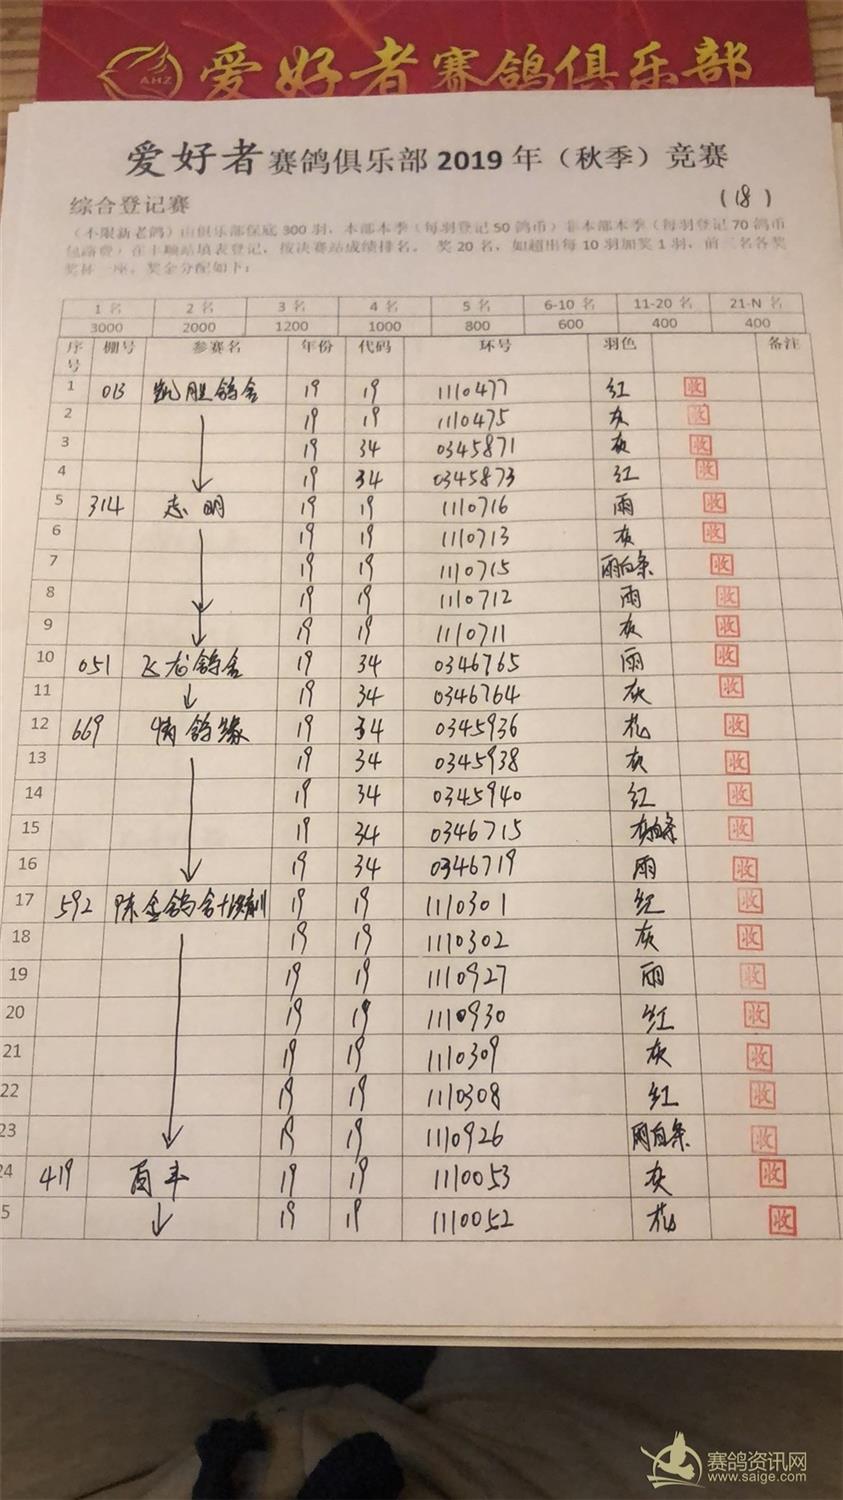 AHZ 爱好者赛鸽俱乐部
爱好者赛鸽俱乐部2019年（秋季）竞赛
综合登记赛 (18)
（不限新老鸽）由俱乐部保底300羽，本部本季（每羽登记50鸽币）非本部本季（每羽登记70鸽币
包路费）在丰顺站填表登记，按决赛站成绩排名。 奖20名，如超出每10羽加奖1羽，前三名各奖
奖杯一座，奖金分配如下：
1名 2名 3名 4名 5名 6-10名 11-20名 21-N名
3000 2000 1200 1000 800 600 400 400
序号 棚号 参赛名 年份 代码 环号 羽色 备注
1 013 凯胜鸽舍 19 19 1110477 红 收
2 19 19 1110475 灰 收
3 19 34 0345871 灰 收
4 19 34 0345873 红 收
5 314 志明 19 19 1110716 雨 收
6 19 19 1110713 灰 收
7 19 19 1110715 雨白条 收
8 19 19 1110712 雨 收
9 19 19 1110711 灰 收
10 051 飞龙鸽舍 19 34 0346765 雨 收
11 19 34 0346764 灰 收
12 669 情鸽缘 19 34 0345936 花 收
13 19 34 0345938 灰 收
14 19 34 0345940 红 收
15 19 34 0346715 灰白条 收
16 19 34 0346719 雨 收
17 592 陈金鸽舍+ 19 19 1110301 红 收
18 19 19 1110302 灰 收
19 19 19 1110927 雨 收
20 19 19 1110930 红 收
21 19 19 1110309 灰 收
22 19 19 1110308 红 收
23 19 19 1110926 雨白条 收
24 419 19 19 1110053 灰 收
5 19 19 1110052 花 收
赛鸽资讯网
www.saige.com